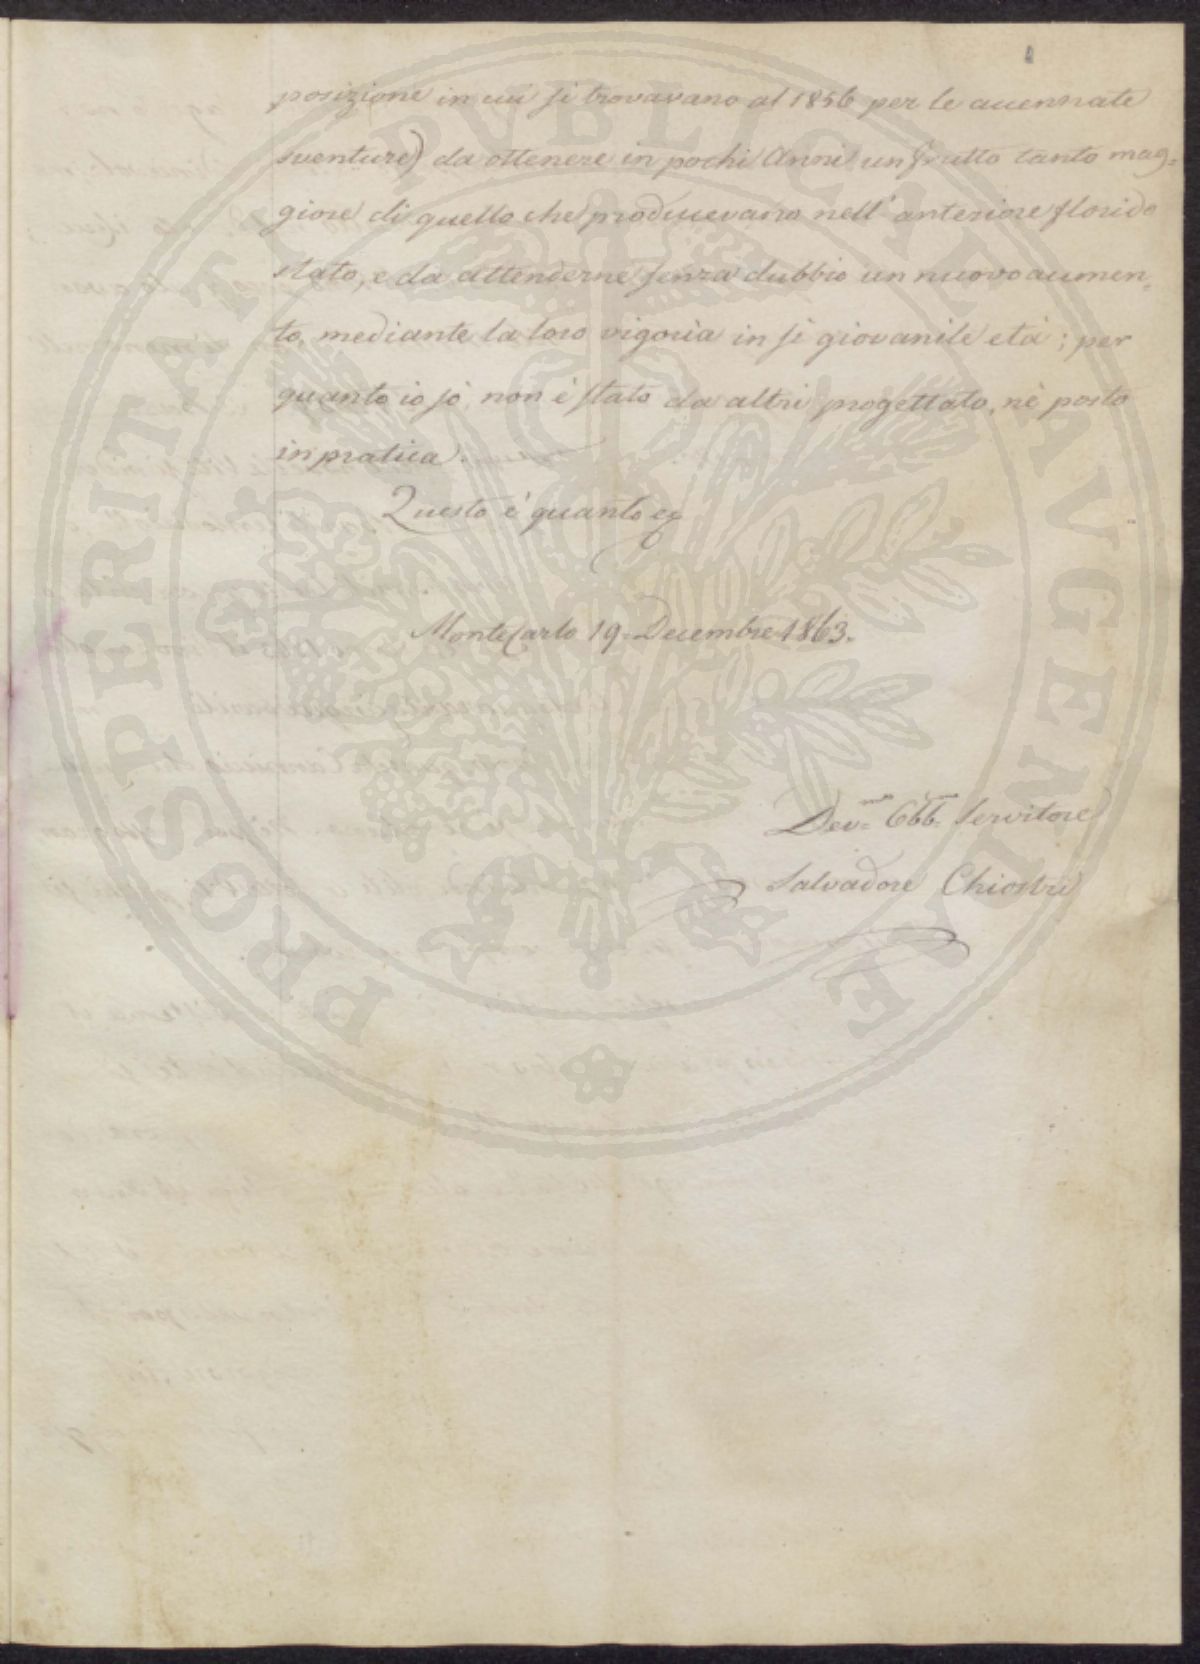 posizione in cui si trovavano al 1856 per le accennate
sventure) da ottenere in pochi Anni un frutto tanto mag=
giore di quello che producevano nell' anteriore florido
stato, e da attenderne senza dubbio un nuovo aumen=
to, mediante la loro vigoria in sì giovanile età; per
quanto io sò, non è stato da altri progettato, nè posto
in pratica.
Questo è quanto
MonteCarlo 19. Decembre 1863.
Dev.mo Obb.mo Servitore
Salvadore Chiostri
PROSPERITATI PVBLICAE AVGENDAE